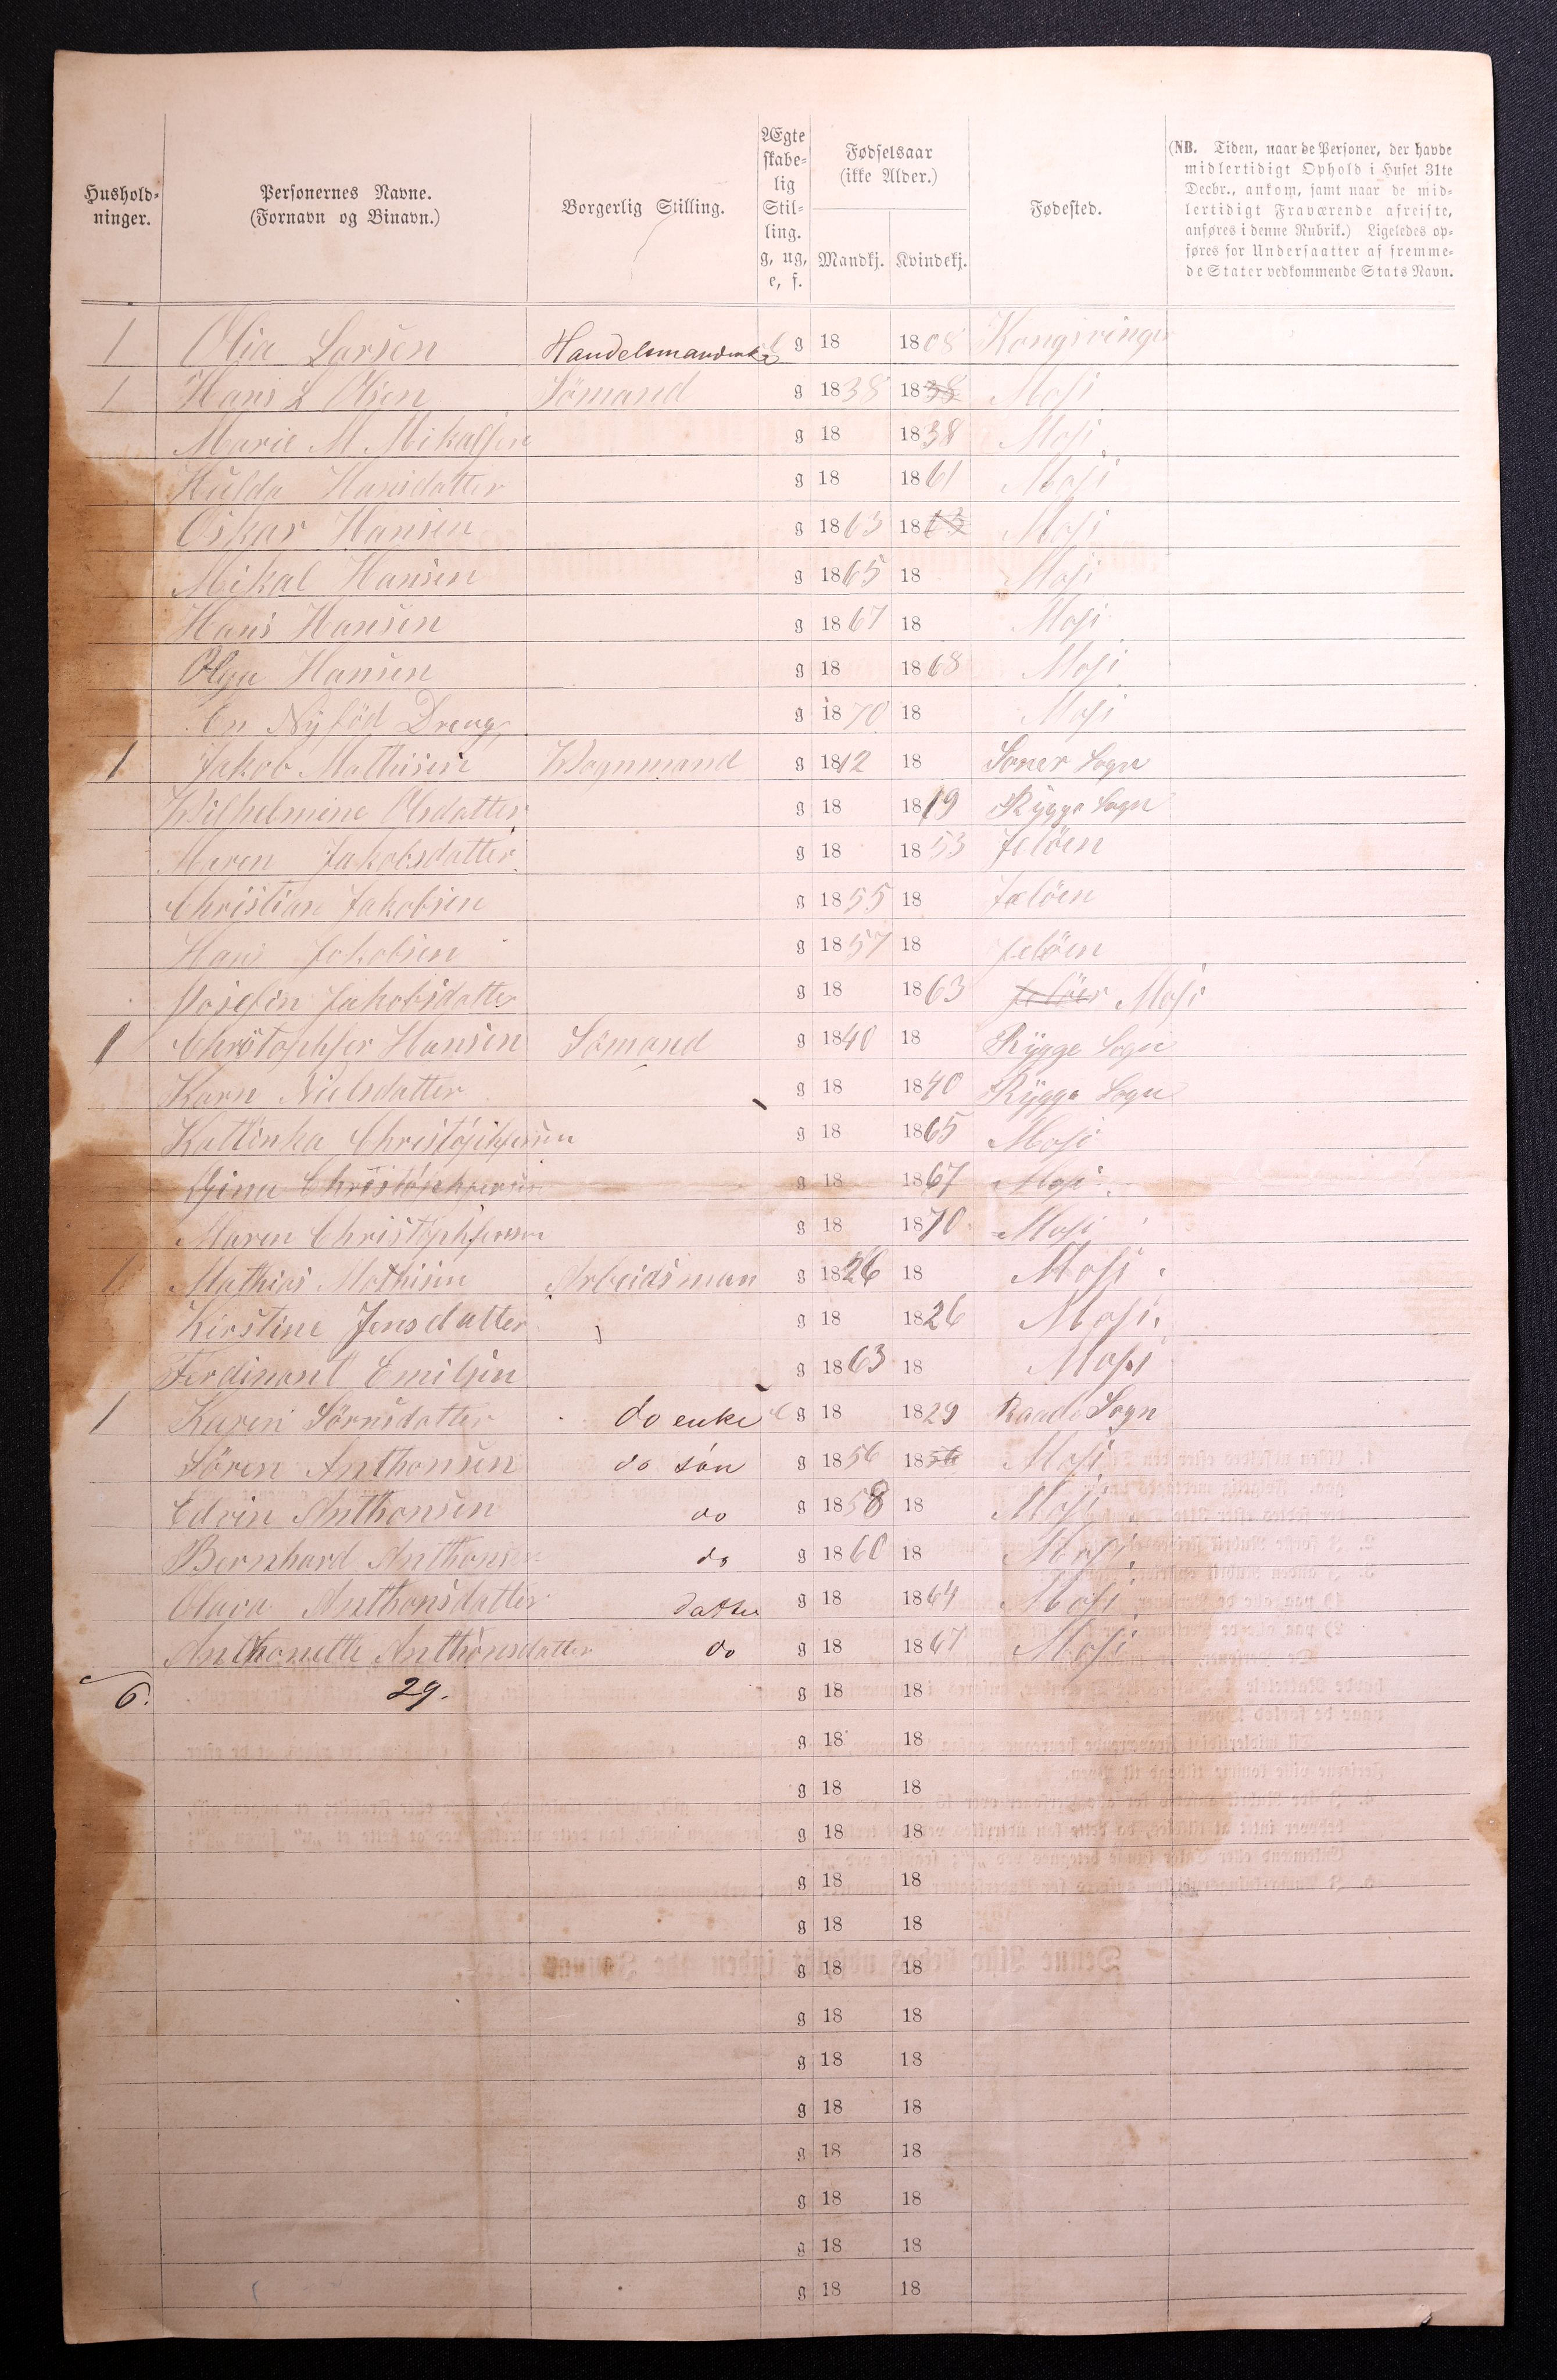 Hushold-
ninger.
Personernes Navne.
(Fornavn og Binavn.)
Borgerlig Stilling.
Ægte
skabe-
lig
Stil-
ling.
g, ug,
e, f.
Fødselsaar
(ikke Alder.)
Mandkj. Kvindekj.
Fødested.
(NB. Tiden, naar de Personer, der havde
midlertidigt Ophold i Huset 31te
Decbr., ankom, samt naar de mid-
lertidigt Fraværende afreiste,
anføres i denne Rubrik.) Ligeledes op-
føres for Undersaatter af fremme-
de Stater vedkommende Stats Navn.
1 Olia Larsen Handelsmandenke e g 18 1808 Kongsvinger
1 Hans L Olsen Sömand g 1838 1838 Moss
Marie M. Mikalsen g 18 1838 Moss
Hulda Hansdatter g 18 1861 Moss
Oskar Hansen g 1863 1863 Moss
Mikal Hansen g 1865 18 Moss
Hans Hansen g 1867 18 Moss
Olga Hansen g 18 1868 Moss
En Nÿföd Dreng g 1870 18 Moss
1 Jakob Mathisen Wognmand g 1812 18 Soner Sogn
Wilhelmine Olsdatter g 18 1819 Rÿgge Sogn
Maren Jakobsdatter g 18 1853 Jelöen
Christian Jakobsen g 1855 18 Jelöen
Hans Jakobsen g 1857 18 Jelöen
Josefin Jakobsdatter g 18 1863 Jelöen Moss
1 Christophfer Hansen Sömand g 1840 18 Rÿgge Sogn
Karn Nielsdatter g 18 1840 Rÿgge Sogn
Kattinka Christophfersen g 18 1865 Moss
Gina Christophfersen g 18 1867 Moss
Maren Christophfersen g 18 1870 Moss
1 Mathias Mathisen Arbeidsman g 1826 18 Moss.
Kirstine Jensdatter g 18 1826 Moss.
Ferdinant Emilsen g 1863 18 Moss
1 Karen Sörnsdatter do enke e g 18 1829 Raade Sogn
Sören Anthonsen do sön g 1856 1856 Moss
Edvin Anthonsen do g 1858 18 Moss
Bernhard Anthonsen do g 1860 18 Moss
Olava Anthonsdatter datter g 18 1864 Moss
Anthonette Anthonsdatter do g 18 1867 Moss
6. 29. g 18 18
g 18 18
g 18 18
g 18 18
g 18 18
g 18 18
g 18 18
g 18 18
g 18 18
g 18 18
g 18 18
g 18 18
g 18 18
g 18 18